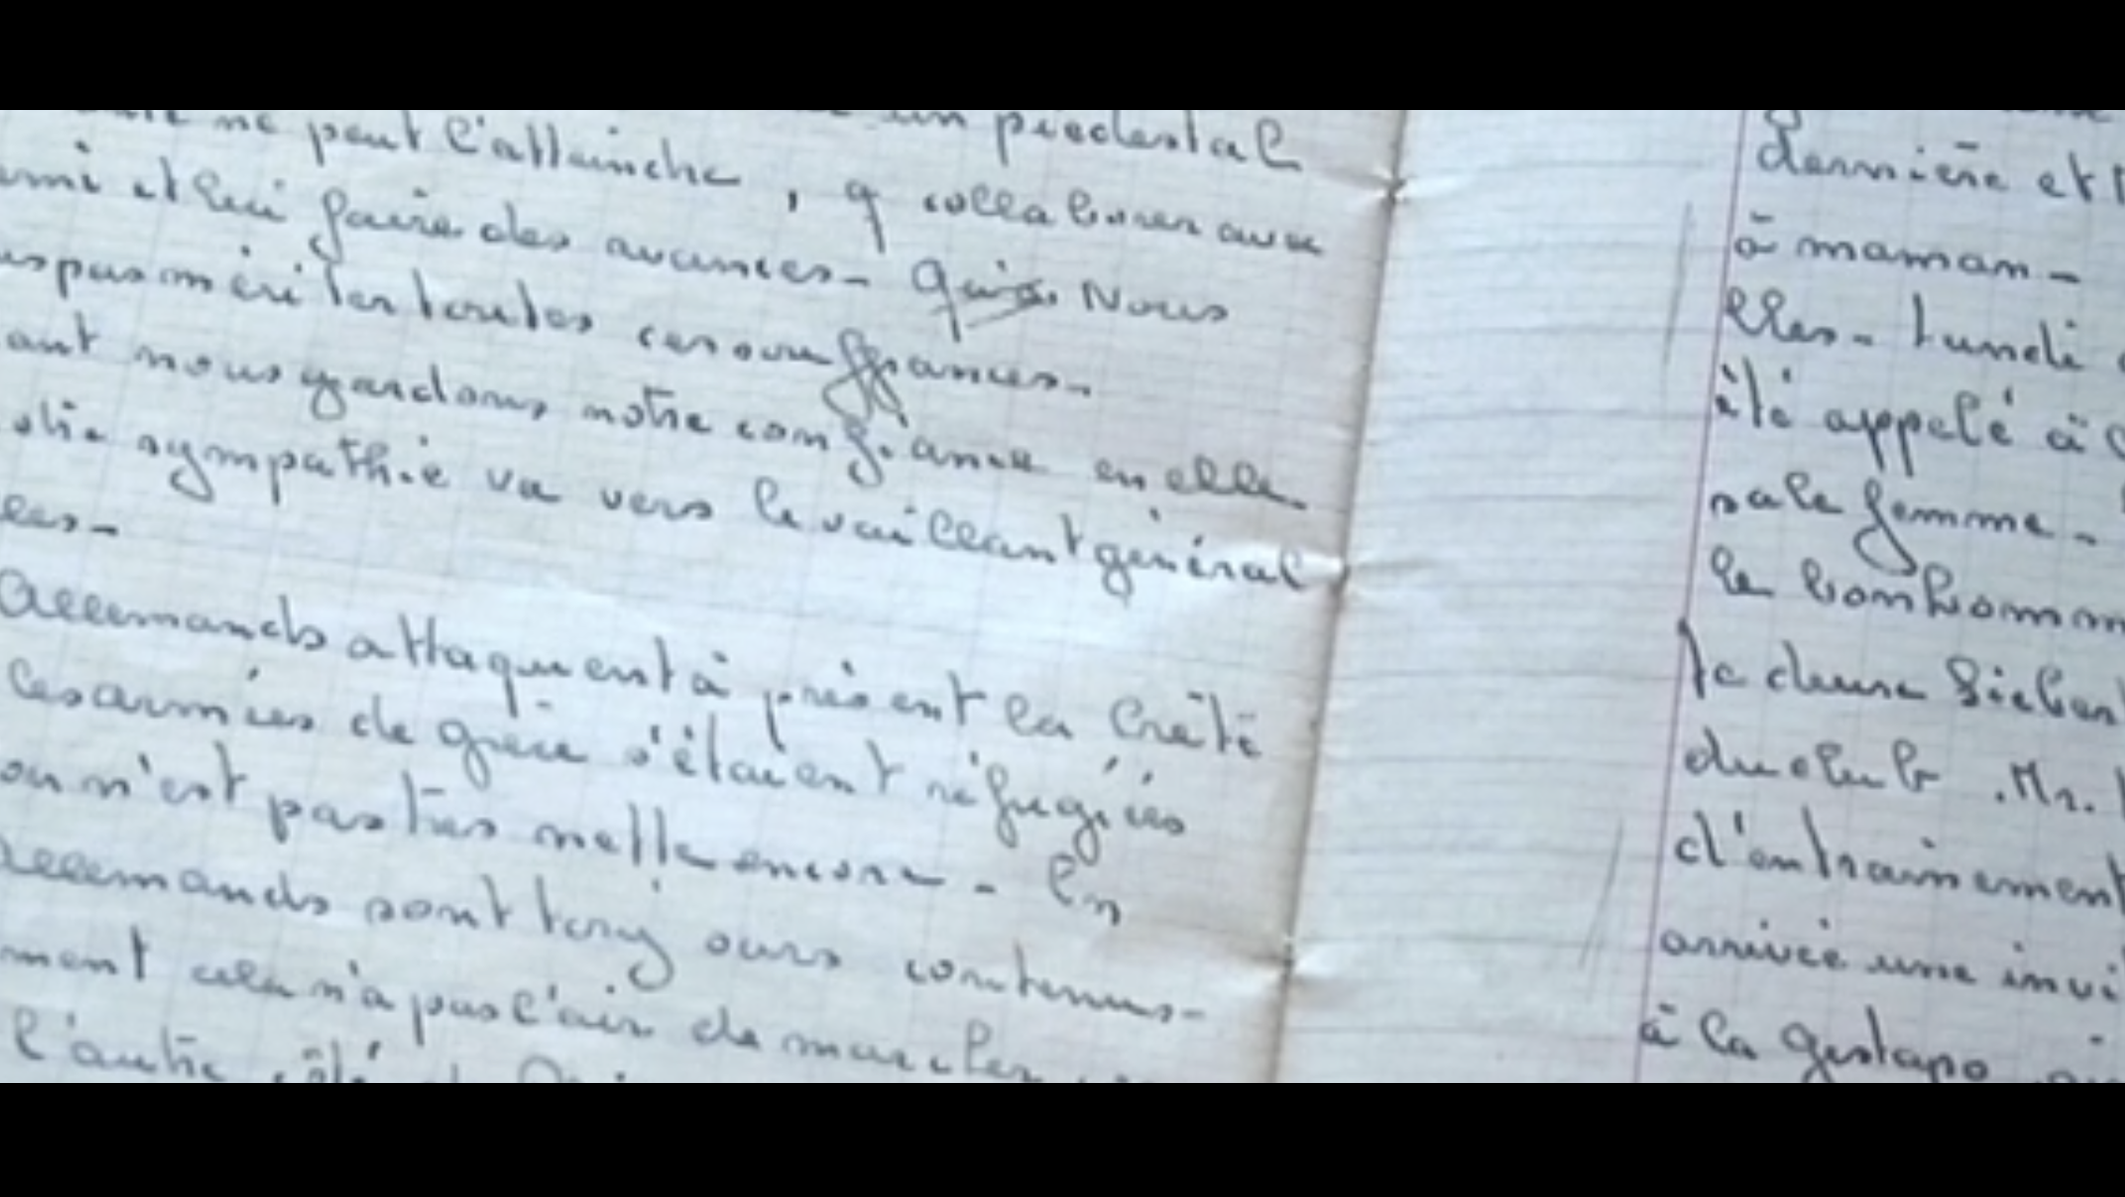 un piedestal
ne peut l'atteindre, q collaborer avec
et lui faire des avances - Nous
pas mériter toutes ces souffrances -
ant nous gardons notre confiance en elle
sympathie va vers le vaillant général
les -
Allemands attaquent à présent la Crète
les armées de grèce s'étaient réfugiées
n'est pas très nette encore - En
Allemands sont toujours contenus -
ment cela n'a pas l'air de marcher
l'autre côté
dernière et
à maman -
elles - Lundi
été appelé à
sale femme -
le bonhomm
Je danse
du club. Mr.
d'entrainement
arrivée une invi
à la gestapo